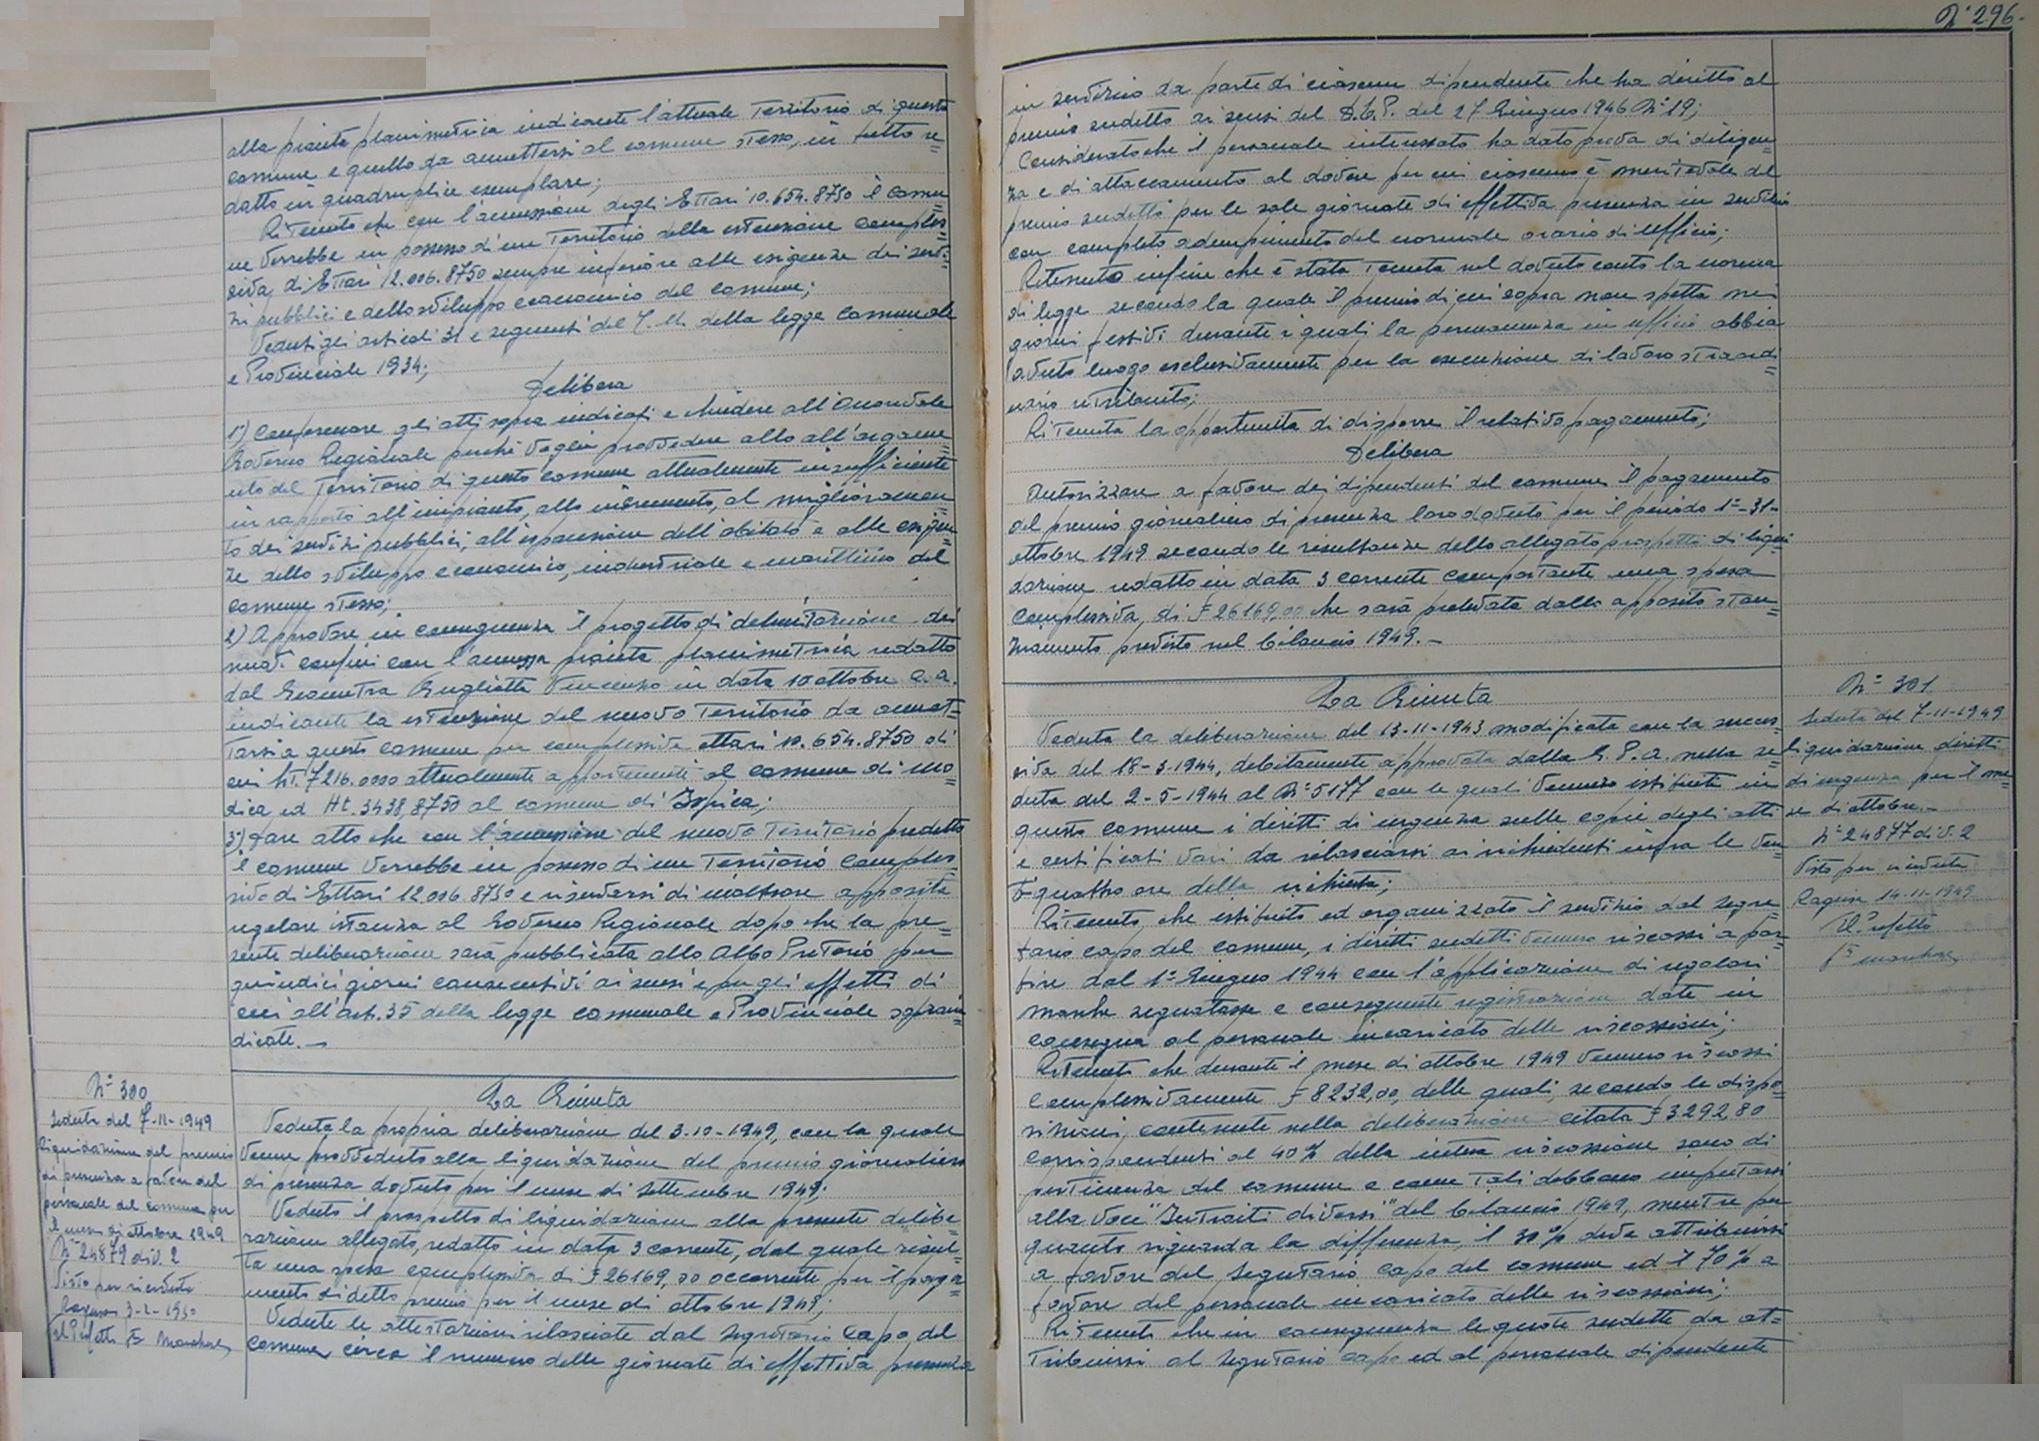 N° 296.
alla pianta planimetrica indicante l'attuale Territorio di questo
comune e quello da annettersi al comune stesso, in tutto re=
datto in quadruplice esemplare;
Ritenuto che con l'annessione degli Ettari 10.654.8750 il comu
ne verrebbe in possesso d'un Territorio della estensione comples=
siva di Ettari 12.006.8750 sempre inferiore alle esigenze dei servi=
zi pubblici e dello sviluppo economico del comune;
Veduti gli articoli 31 e seguenti del T.U. della legge Comunale
e Provinciale 1934;
Delibera
1°) Confermare gli atti sopra indicati e chiedere all'Onorevole
Governo Regionale perché voglia provvedere allo all'argame
nto del Territorio di questo comune attualmente insufficiente
in rapporto all'impianto, allo incremento, al miglioramen
to dei servizi pubblici, all'espansione dell'abitato e alle esigen=
ze dello sviluppo economico, industriale e marittimo del
comune stesso;
2°) Approvare in conseguenza il progetto di delimitazione dei
nuovi confini con l'annessa pianta planimetrica redatto
dal Geometra Vincenzo in data 10 ottobre c.a.
indicante la estensione del nuovo Territorio da annet=
tersi a questo comune per complessive ettari 10.654.8750 di
cui ht. 7216.0000 attualmente appartenenti al comune di Mo=
dica ed Ht. 3438,8750 al comune di Ispica;
3°) Fare atto che con l'annessione del nuovo Territorio predetto
il comune verrebbe in possesso di un Territorio comples
sivo di Ettari 12.006.8750 e riservarsi di inoltrare apposita
regolare istanza al Governo Regionale dopo che la pre=
sente deliberazione sarà pubblicata allo Albo Pretorio per
quindici giorni consecutivi ai sensi e per gli effetti di
cui all'art. 35 della legge comunale e Provinciale sopra in=
dicate.—
N° 300
Seduta del 7-11-1949
Liquidazione del premio
di presenza a favore del
personale del comune per
il mese di ottobre 1949
N° 24879 div. 2
Visto per ricevuta
Ragusa 3-2-1950
Il Prefetto
La Giunta
Veduta la propria deliberazione del 3-10-1949, con la quale
venne provveduto alla liquidazione del premio giornaliero
di presenza dovuto per il mese di Settembre 1949;
Veduto il prospetto di liquidazione alla presente delibe=
razione allegato, redatto in data 3 corrente, dal quale risul=
ta una spesa complessiva di £ 26169,00 occorrente per il paga=
mento di detto premio per il mese di ottobre 1949;
Vedute le attestazioni rilasciate dal Segretario Capo del
comune circa il numero delle giornate di effettiva presenza
in servizio da parte di ciascun dipendente che ha diritto al
premio sudetto ai sensi del D.L.P. del 27 Giugno 1946 N° 19;
Considerato che il personale interessato ha dato prova di diligen=
za e di attaccamento al dovere per cui ciascuno è meritevole del
premio sudetto per le sole giornate di effettiva presenza in servizio
con completo adempimento del normale orario di ufficio;
Ritenuto infine che è stata tenuta nel dovuto conto la norma
di legge secondo la quale il premio di cui sopra non spetta nei
giorni festivi durante i quali la permanenza in ufficio abbia
avuto luogo esclusivamente per la esecuzione di lavoro straordi=
nario retribuito;
Ritenuta la opportunità di disporre il relativo pagamento;
Delibera
Autorizzare a favore dei dipendenti del comune il pagamento
del premio giornaliero di presenza loro dovuto per il periodo 1°-31-
ottobre 1949 secondo le risultanze dello allegato prospetto di liqui=
dazione redatto in data 3 corrente comportante una spesa
complessiva di £ 26169,00 che sarà prelevata dallo apposito stan=
ziamento previsto nel bilancio 1949.—
La Giunta
Veduta la deliberazione del 13-11-1943 modificata con la succes=
siva del 18-3-1944, debitamente approvata dalla G.P.A. nella se=
duta del 2-5-1944 al N° 5177 con le quali vennero istituiti in
questo comune i diritti di urgenza sulle copie degli atti
e certificati vari da rilasciarsi ai richiedenti infra le ven=
tiquattro ore della richiesta;
Ritenuto che istituito ed organizzato il servizio dal segre=
tario capo del comune, i diritti sudetti vennero riscossi a par=
tire dal 1° Giugno 1944 con l'applicazione di regolari
marche segnatasse e conseguente registrazione date in
consegna al personale incaricato delle riscossioni;
Ritenuto che durante il mese di ottobre 1949 vennero riscossi
complessivamente £ 8232,00, delle quali, secondo le dispo=
sizioni contenute nella deliberazione citata £ 3292,80
corrispondenti al 40% della intera riscossione sono di
pertinenza del comune e come tali debbono imputarsi
alla voce "Introiti diversi" del bilancio 1949, mentre per
quanto riguarda la differenza, il 30% deve attribuirsi
a favore del Segretario capo del comune ed il 70% a
favore del personale incaricato delle riscossioni;
Ritenuto che in conseguenza le quote sudette da at=
tribuirsi al Segretario capo ed al personale dipendente
N° 301
Seduta del 7-11-1949
Liquidazione diritti
di urgenza per il me=
se di ottobre.—
N° 24877 div. 2
Visto per ricevuta
Ragusa 14-11-1949
Il Prefetto